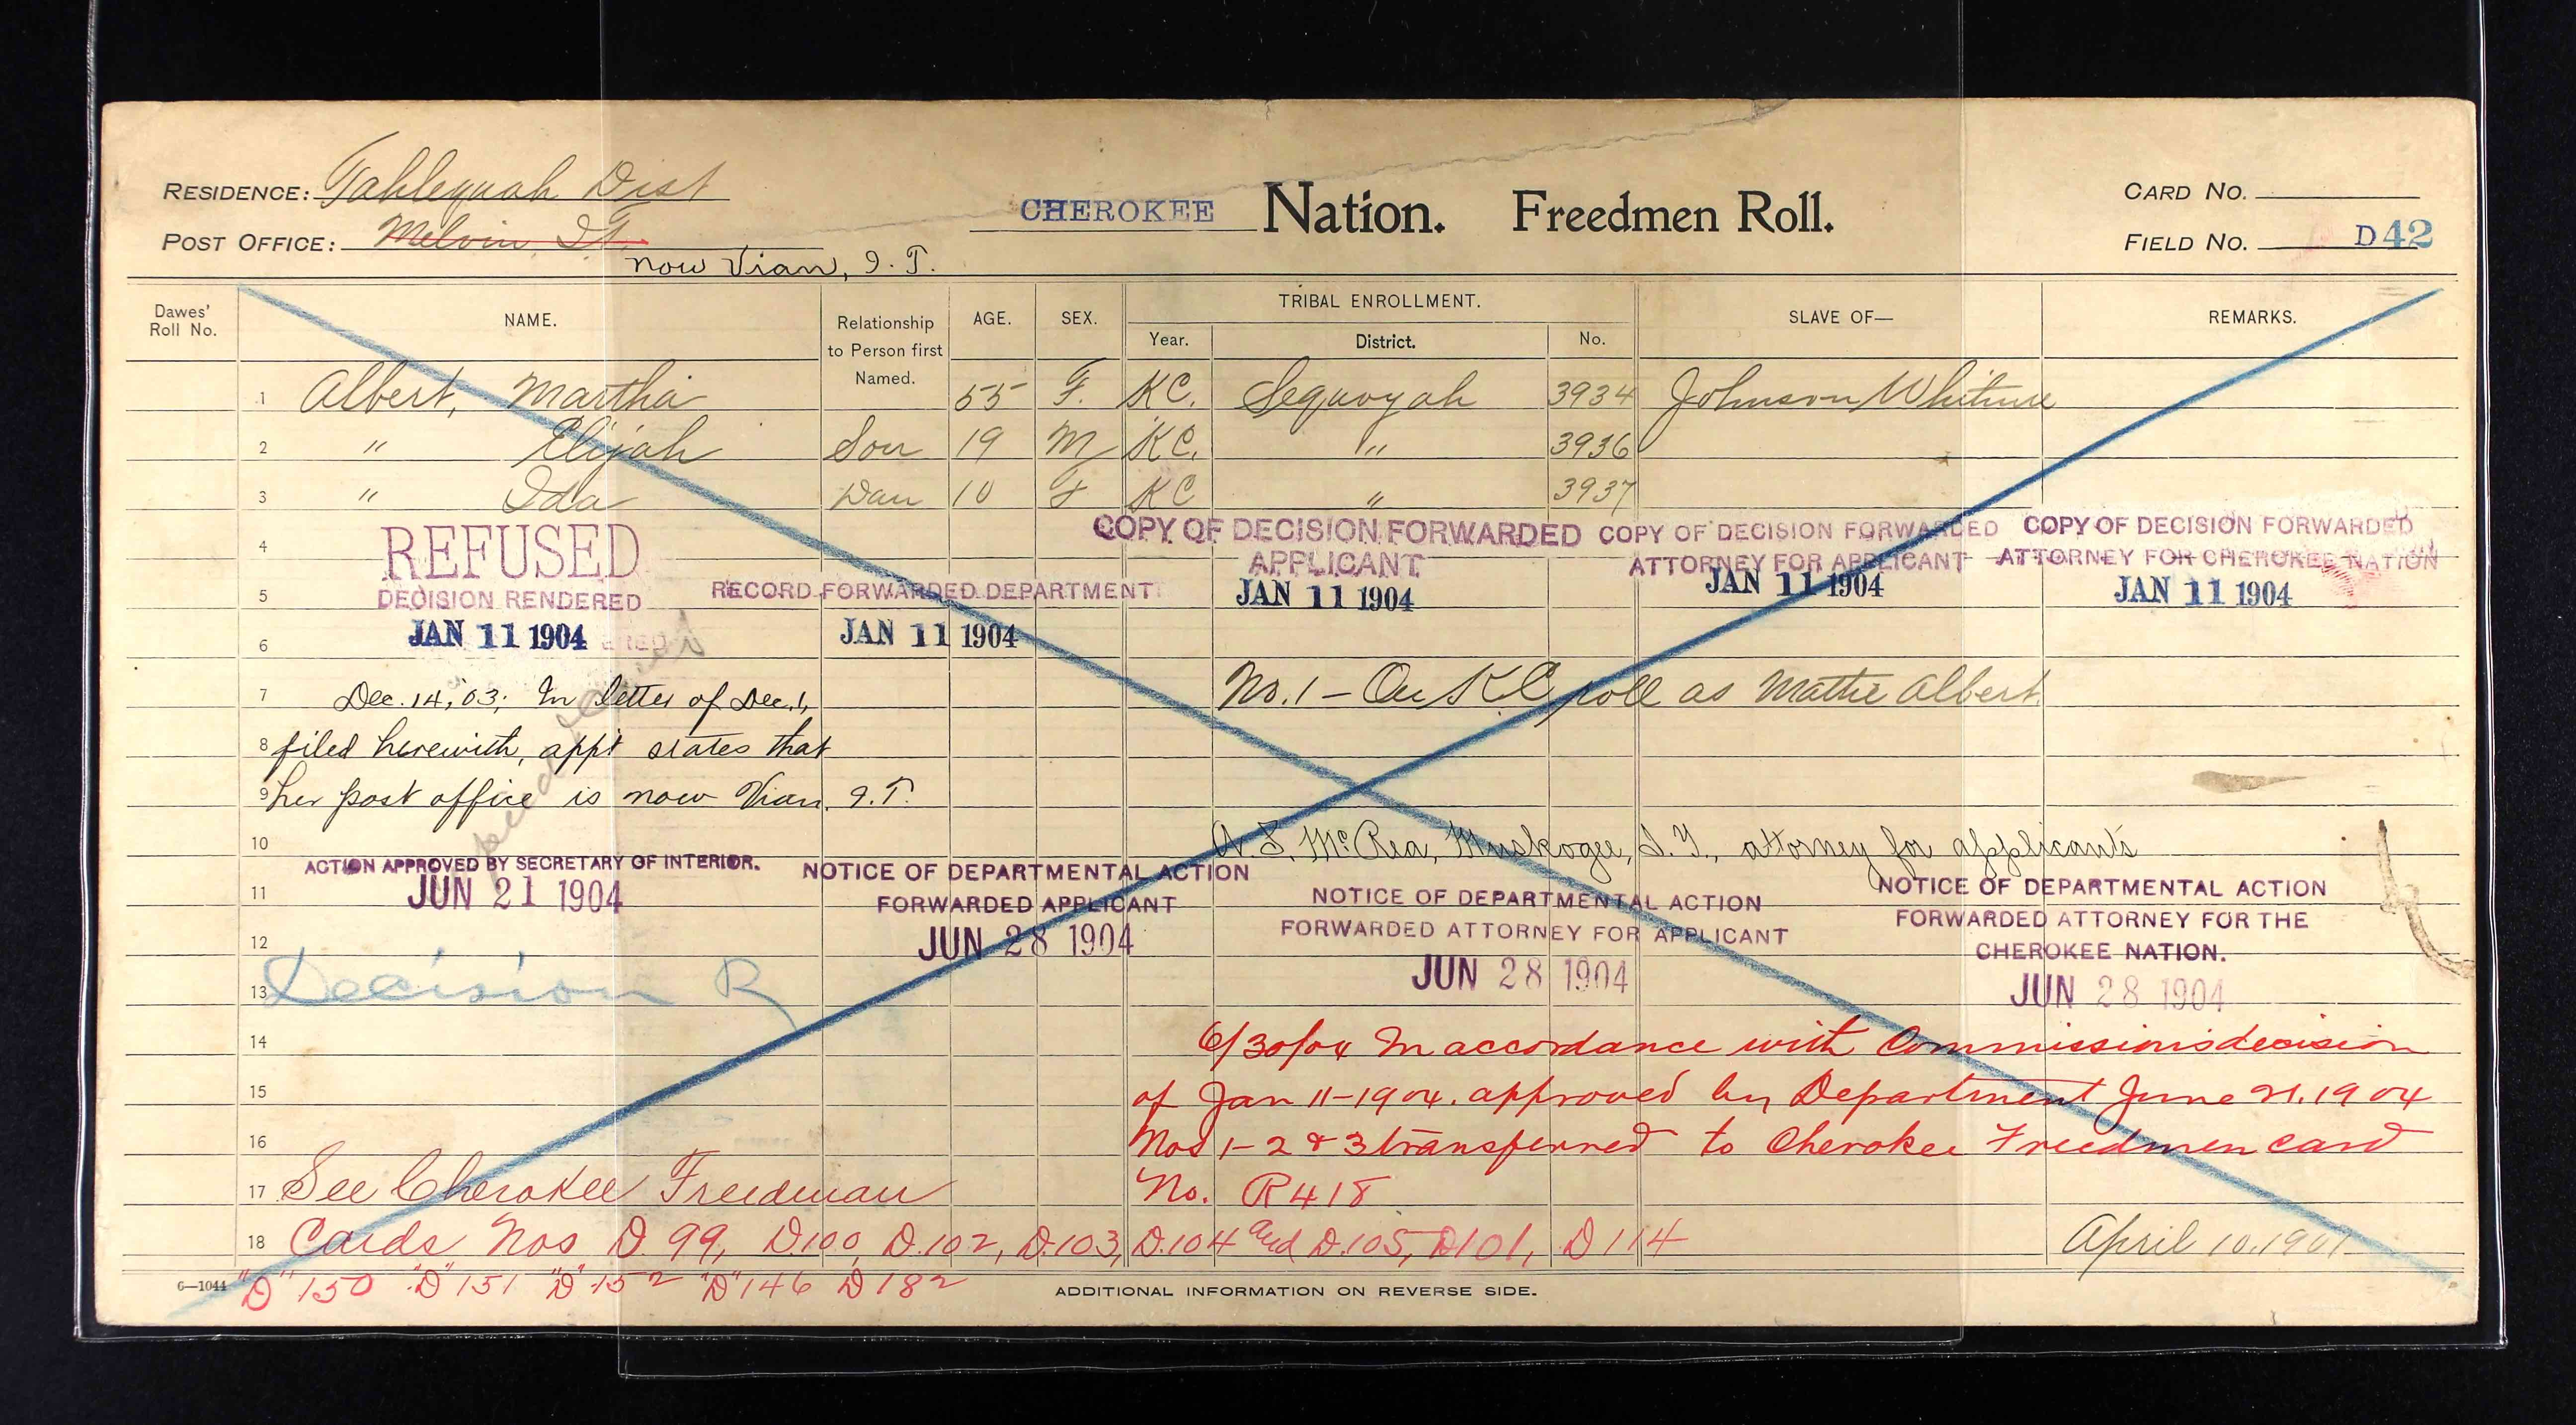 RESIDENCE: Tahlequah Dist
POST OFFICE: Melvin I.T.
now Vian, I. T.
CHEROKEE Nation. Freedmen Roll.
CARD NO.
FIELD NO. D42
Dawes' Roll No. NAME. Relationship to Person first Named. AGE. SEX. TRIBAL ENROLLMENT. Year. District. No. SLAVE OF— REMARKS.
1 Albert, Martha 55 F. KC. Sequoyah 3934 Johnson Whitmire
2 " Elijah Son 19 M KC. " 3936
3 " Ida Dau 10 F KC " 3937
4 REFUSED
5 DECISION RENDERED
6 JAN 11 1904
RECORD FORWARDED DEPARTMENT
JAN 11 1904
COPY OF DECISION FORWARDED
APPLICANT
JAN 11 1904
COPY OF DECISION FORWARDED
ATTORNEY FOR APPLICANT
JAN 11 1904
COPY OF DECISION FORWARDED
ATTORNEY FOR CHEROKEE NATION
JAN 11 1904
No. 1 – On KC roll as Mattie Albert.
7 Dec. 14, '03; In letter of Dec. 1,
8 filed herewith, app't states that
9 her post office is now Vian. I.T.
10 A. S. McRea, Muskogee, I. T., attorney for applicants
ACTION APPROVED BY SECRETARY OF INTERIOR.
11 JUN 21 1904
NOTICE OF DEPARTMENTAL ACTION
FORWARDED APPLICANT
12 JUN 28 1904
NOTICE OF DEPARTMENTAL ACTION
FORWARDED ATTORNEY FOR APPLICANT
JUN 28 1904
NOTICE OF DEPARTMENTAL ACTION
FORWARDED ATTORNEY FOR THE
CHEROKEE NATION.
JUN 28 1904
13 Decision R
14 6/30/04 In accordance with Commission's decision
15 of Jan 11-1904. approved by Department June 21. 1904
16 Nos 1-2 & 3 transferred to Cherokee Freedmen card
No. R418
17 See Cherokee Freedman
18 Cards Nos D. 99, D100, D.102, D.103, D.104 and D.105, D101, D114
April 10, 1901
G—1044 "D" 150 "D" 151 "D" 152 "D" 146 D 182
ADDITIONAL INFORMATION ON REVERSE SIDE.